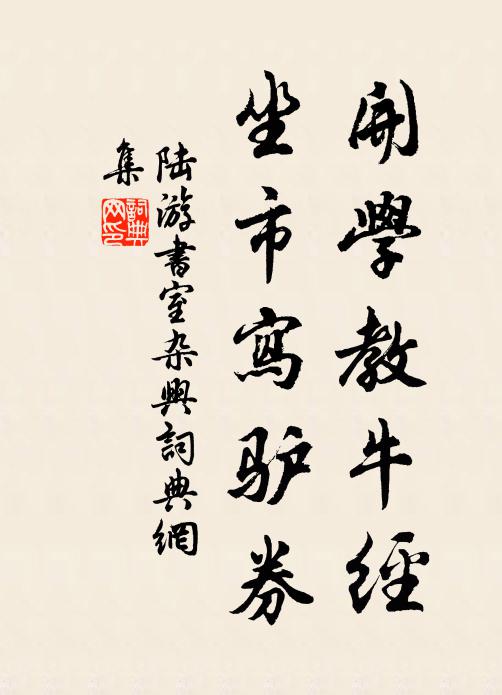 開學教牛經
坐市寫驴券
陆游書室杂興詞典網
集
詞典網印